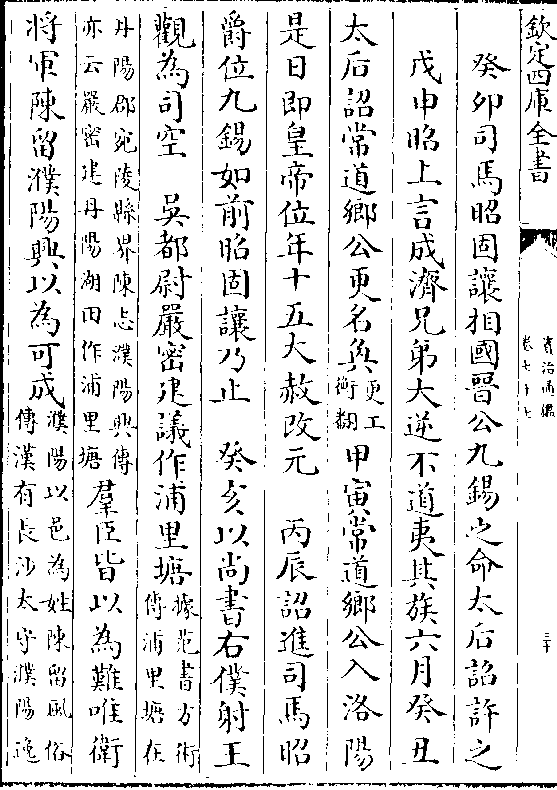 欽定四庫全書
資治通鑑
卷七十七
三十
癸卯司馬昭固讓相國晉公九錫之命太后詔許之
戊申昭上言成濟兄弟大逆不道夷其族六月癸丑
太后詔常道鄉公更名奐更工衡翻甲寅常道鄉公入洛陽
是日即皇帝位年十五大赦改元 丙辰詔進司馬昭
爵位九錫如前昭固讓乃止 癸亥以尚書右僕射王
觀為司空 吳都尉嚴密建議作浦里塘據范書方術傳浦里塘在
丹陽郡宛陵縣界陳志濮陽興傳亦云嚴密建丹陽湖田作浦里塘羣臣皆以為難唯衛
將軍陳留濮陽興以為可成濮陽以邑為姓陳留風俗傳漢有長沙太守濮陽逸